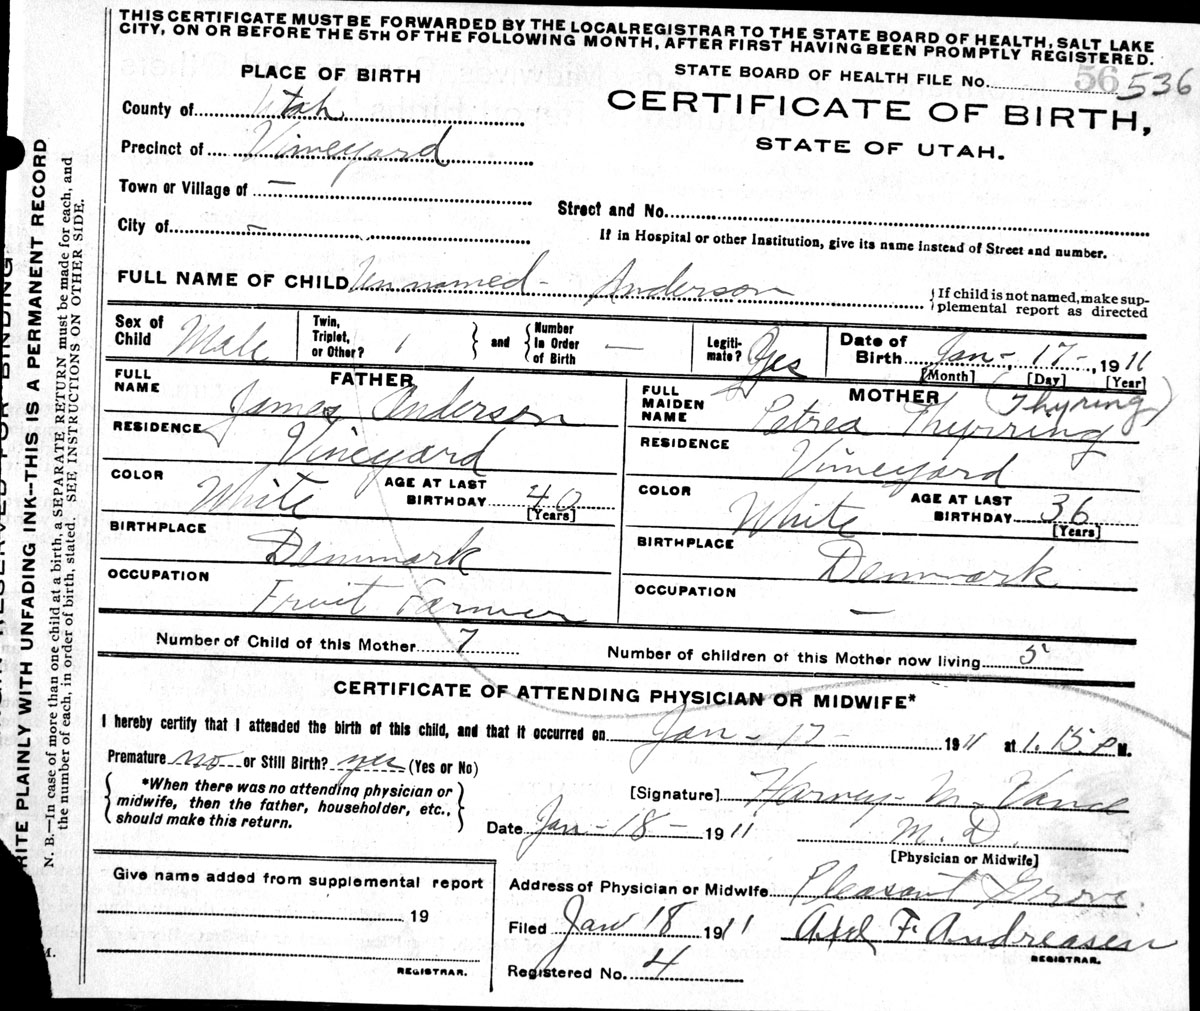 THIS CERTIFICATE MUST BE FORWARDED BY THE LOCALREGISTRAR TO THE STATE BOARD OF HEALTH, SALT LAKE
CITY, ON OR BEFORE THE 5TH OF THE FOLLOWING MONTH, AFTER FIRST HAVING BEEN PROMPTLY REGISTERED.
PLACE OF BIRTH
STATE BOARD OF HEALTH FILE No. 56 536
County of Utah
CERTIFICATE OF BIRTH,
Precinct of Vineyard
STATE OF UTAH.
Town or Village of —
Street and No.
City of —
If in Hospital or other Institution, give its name instead of Street and number.
FULL NAME OF CHILD Unnamed - Anderson
{If child is not named, make sup-
plemental report as directed
Sex of Child Male
Twin, Triplet, or Other? 1
and
Number In Order of Birth —
Legiti-mate? Yes
Date of Birth Jan - 17 -, 1911
[Month] [Day] [Year]
FULL NAME
FATHER
James Anderson
FULL MAIDEN NAME
MOTHER (Thyring)
Petrea Thyrring
RESIDENCE Vineyard
RESIDENCE Vineyard
COLOR White
AGE AT LAST BIRTHDAY 40
[Years]
COLOR White
AGE AT LAST BIRTHDAY 36
[Years]
BIRTHPLACE Denmark
BIRTHPLACE Denmark
OCCUPATION Fruit Farmer
OCCUPATION —
Number of Child of this Mother 7
Number of children of this Mother now living 5
CERTIFICATE OF ATTENDING PHYSICIAN OR MIDWIFE*
I hereby certify that I attended the birth of this child, and that it occurred on Jan - 17 - 1911 at 1.15 P M.
Premature no or Still Birth? yes (Yes or No)
*When there was no attending physician or
midwife, then the father, householder, etc.,
should make this return.
[Signature] Harvey M. Vance
Date Jan - 18 - 1911
M. D.
[Physician or Midwife]
Give name added from supplemental report
19
REGISTRAR.
Address of Physician or Midwife Pleasant Grove.
Filed Jan 18 1911 Axel F. Andreasen
REGISTRAR.
Registered No. 4
RITE PLAINLY WITH UNFADING INK--THIS IS A PERMANENT RECORD
N. B.—In case of more than one child at a birth, a SEPARATE RETURN must be made for each, and
the number of each, in order of birth, stated. SEE INSTRUCTIONS ON OTHER SIDE.